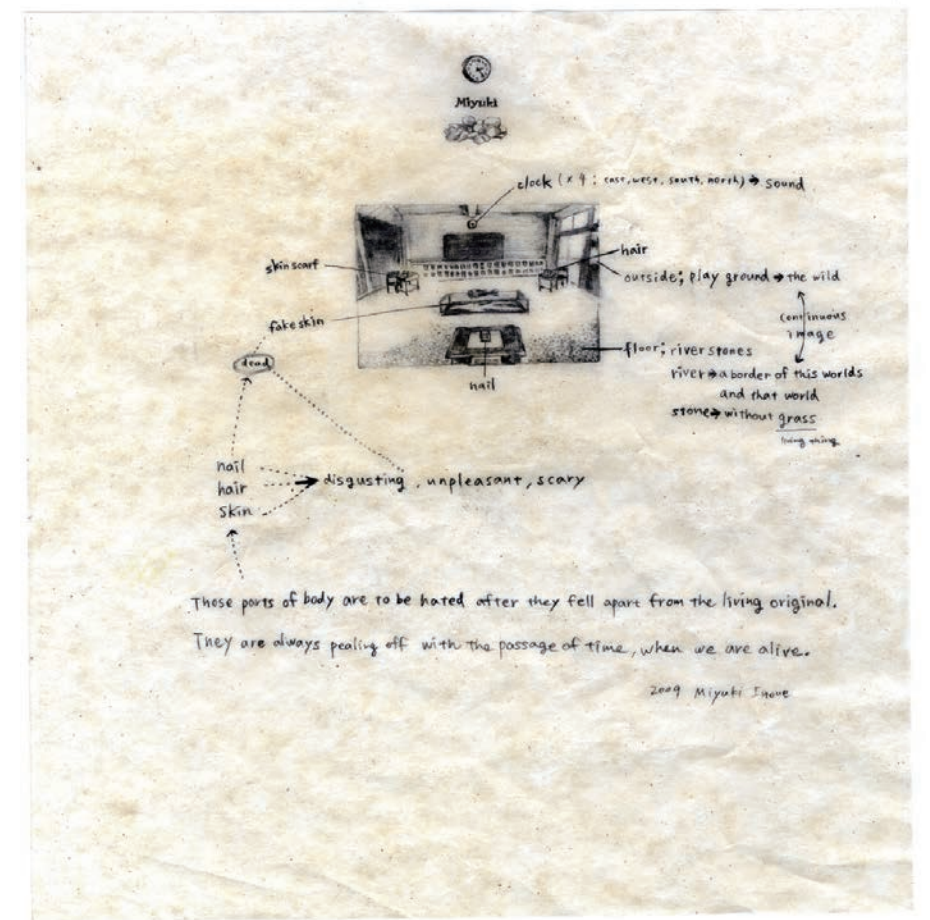 Miyuki
clock (x 4 : east, west, south, north) → sound
hair
skin scarf
outside; play ground → the wild
continuous
image
fake skin
floor; river stones
dead
river → a border of this worlds
and that world
nail
stone → without grass
living thing
nail
hair
skin
disgusting, unpleasant, scary
Those ports of body are to be hated after they fell apart from the living original.
They are always pealing off with the passage of time, when we are alive.
2009 Miyuki Inoue